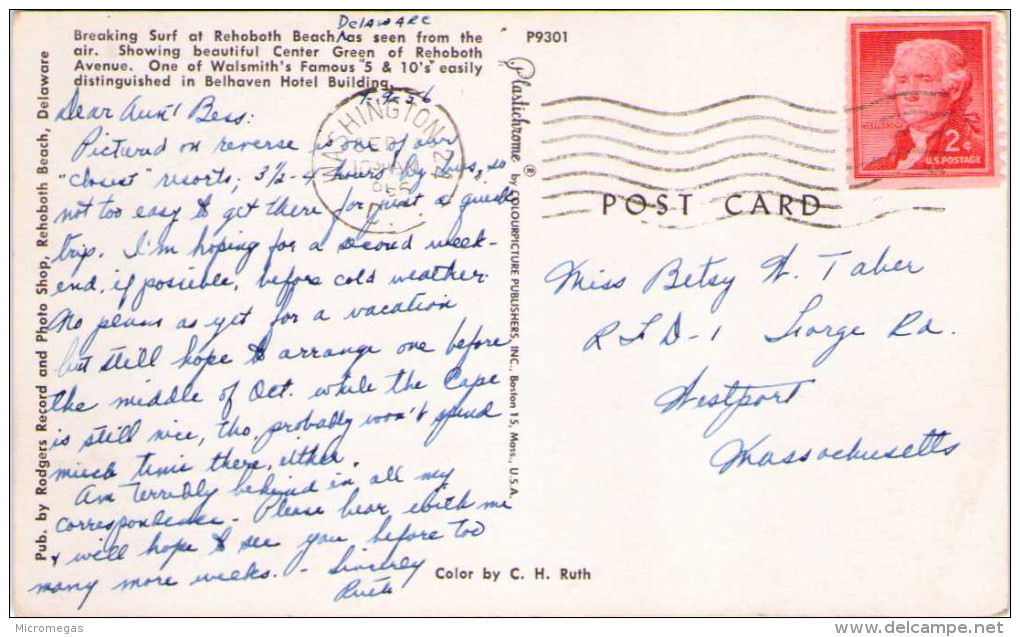 Breaking Surf at Rehoboth Beach DELAWARE as seen from the
air. Showing beautiful Center Green of Rehoboth
Avenue. One of Walsmith's Famous "5 & 10's" easily
distinguished in Belhaven Hotel Building.
9-9-56
Dear Aunt Bess:
Pictured on reverse is one of our
"closest" resorts; 3½-4 hours by bus, so
not too easy to get there for just a quick
trip. I'm hoping for a second week-
end, if possible, before cold weather.
No plans as yet for a vacation
but still hope to arrange one before
the middle of Oct. while the Cape
is still nice, tho probably won't spend
much time there, either.
Am terribly behind in all my
correspondence - Please bear with me
& will hope to see you before too
many more weeks. - Sincerely
Ruth
Pub. by Rodgers Record and Photo Shop, Rehoboth Beach, Delaware
Plastichrome ® by COLOURPICTURE PUBLISHERS, INC., Boston 15, Mass., U.S.A.
P9301
WASHINGTON
POST CARD
2¢
U.S. POSTAGE
Miss Betsy W. Taber
RFD-1 Gorge Rd.
Westport
Massachusetts
Color by C. H. Ruth
Micromegas
delcampe.net